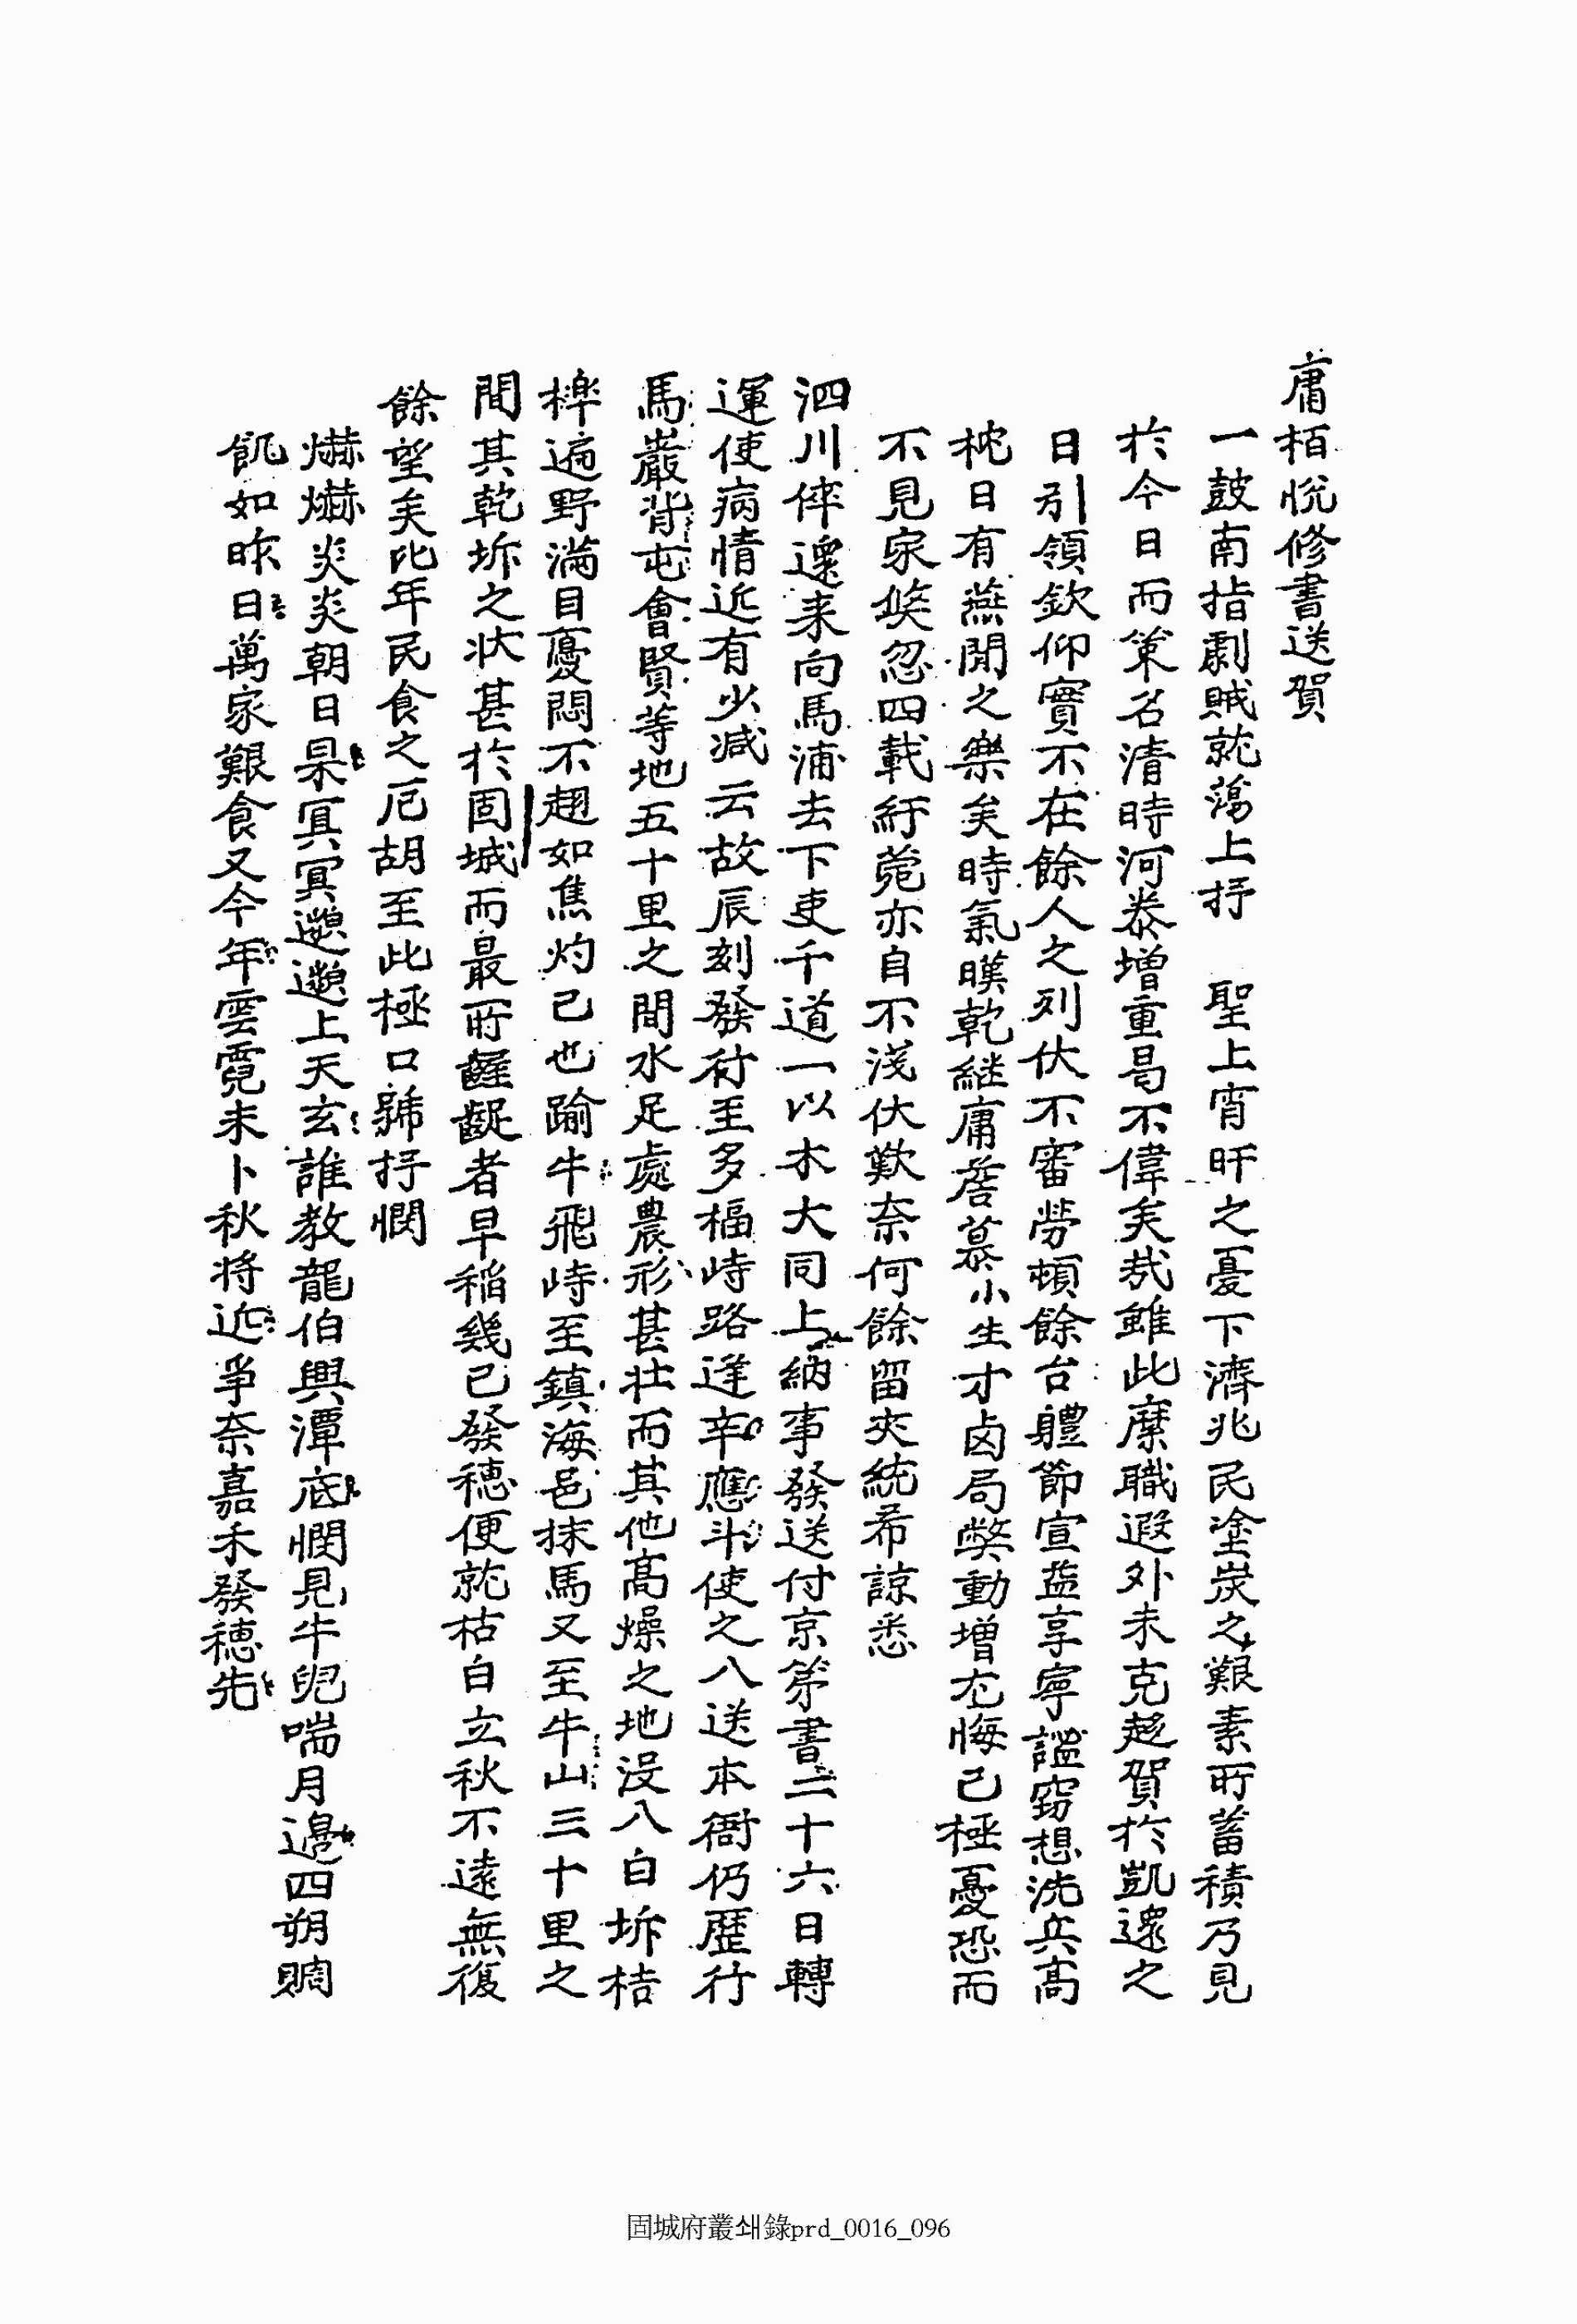 庸栢悅修書送賀
一鼓南指劇賊就蕩上抒 聖上宵旰之憂下濟兆民塗炭之艱素所蓄積乃見
於今日而策名清時河泰增重曷不偉矣哉雖此縻職遐外未克趍賀於凱還之
日引領欽仰實不在餘人之列伏不審勞頓餘台體節宣益享寧謐竊想洗兵高
枕日有燕閒之樂矣時氣暵乾繼庸蓍慕小生才鹵局弊動增尤悔己極憂恐而
不見家倐忽四載紆菀亦自不淺伏歎奈何餘留夾統希諒悉
泗川倅還来向馬浦去下吏千道一以木大同上納事發送付京第書二十六日轉
運使病情近有少减云故辰刻發行至多福峙路逢辛應斗使之八送本衙仍歷行
馬巖背屯會賢等地五十里之間水足處農形甚壮而其他高燥之地没八白坼桔
槹遍野滿目憂悶不趐如焦灼已也踰牛飛峙至鎮海邑抹馬又至牛山三十里之
間其乾坼之状甚於固城而最所齷齪者早稲幾已發穗便就枯白立秋不遠無復
餘望矣比年民食之厄胡至此極口號抒憫
爀爀炎炎朝日杲冥冥邈邈上天玄誰教龍伯興潭底憫見牛児喘月邊四朔賙
飢如昨日萬家艱食又今年雲霓未卜秋将近爭奈嘉禾發穗先
固城府叢쇄錄prd_0016_096